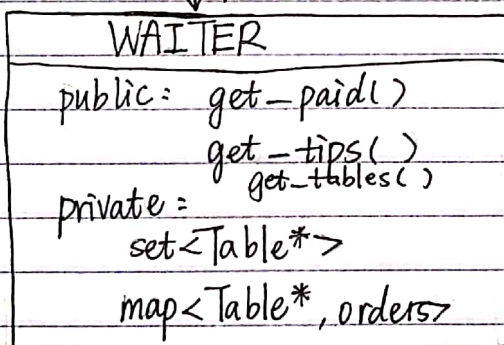 WAITER
public: get_paid()
get_tips()
get_tables()
private:
set<Table*>
map<Table*, orders>